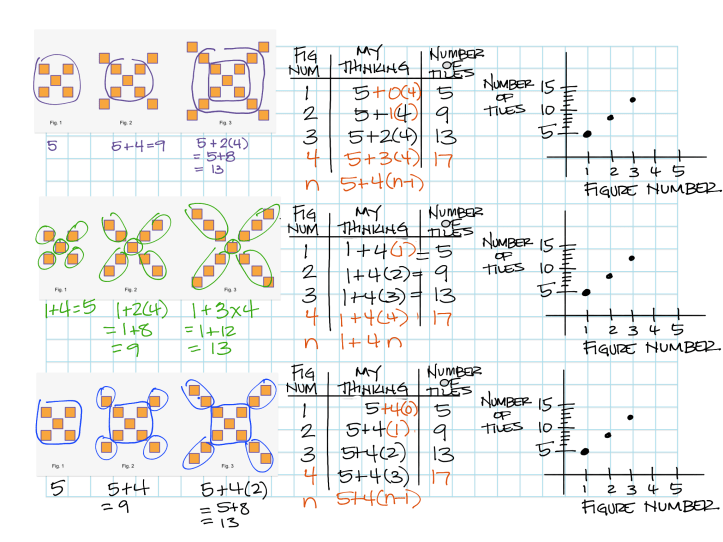 Fig. 1
Fig. 2
Fig. 3
5
5+4=9
5+2(4)
= 5+8
= 13
FIG NUM
MY THINKING
NUMBER OF TILES
1 5+0(4) 5
2 5+1(4) 9
3 5+2(4) 13
4 5+3(4) 17
n 5+4(n-1)
NUMBER OF TILES
15
10
5
1 2 3 4 5
FIGURE NUMBER
Fig. 1
Fig. 2
Fig. 3
1+4=5
1+2(4)
=1+8
=9
1+3x4
=1+12
= 13
FIG NUM
MY THINKING
NUMBER OF TILES
1 1+4(1) = 5
2 1+4(2) = 9
3 1+4(3) = 13
4 1+4(4) 17
n 1+4n
NUMBER OF TILES
15
10
5
1 2 3 4 5
FIGURE NUMBER
Fig. 1
Fig. 2
Fig. 3
5
5+4
= 9
5+4(2)
= 5+8
= 13
FIG NUM
MY THINKING
NUMBER OF TILES
1 5+4(0) 5
2 5+4(1) 9
3 5+4(2) 13
4 5+4(3) 17
n 5+4(n-1)
NUMBER OF TILES
15
10
5
1 2 3 4 5
FIGURE NUMBER